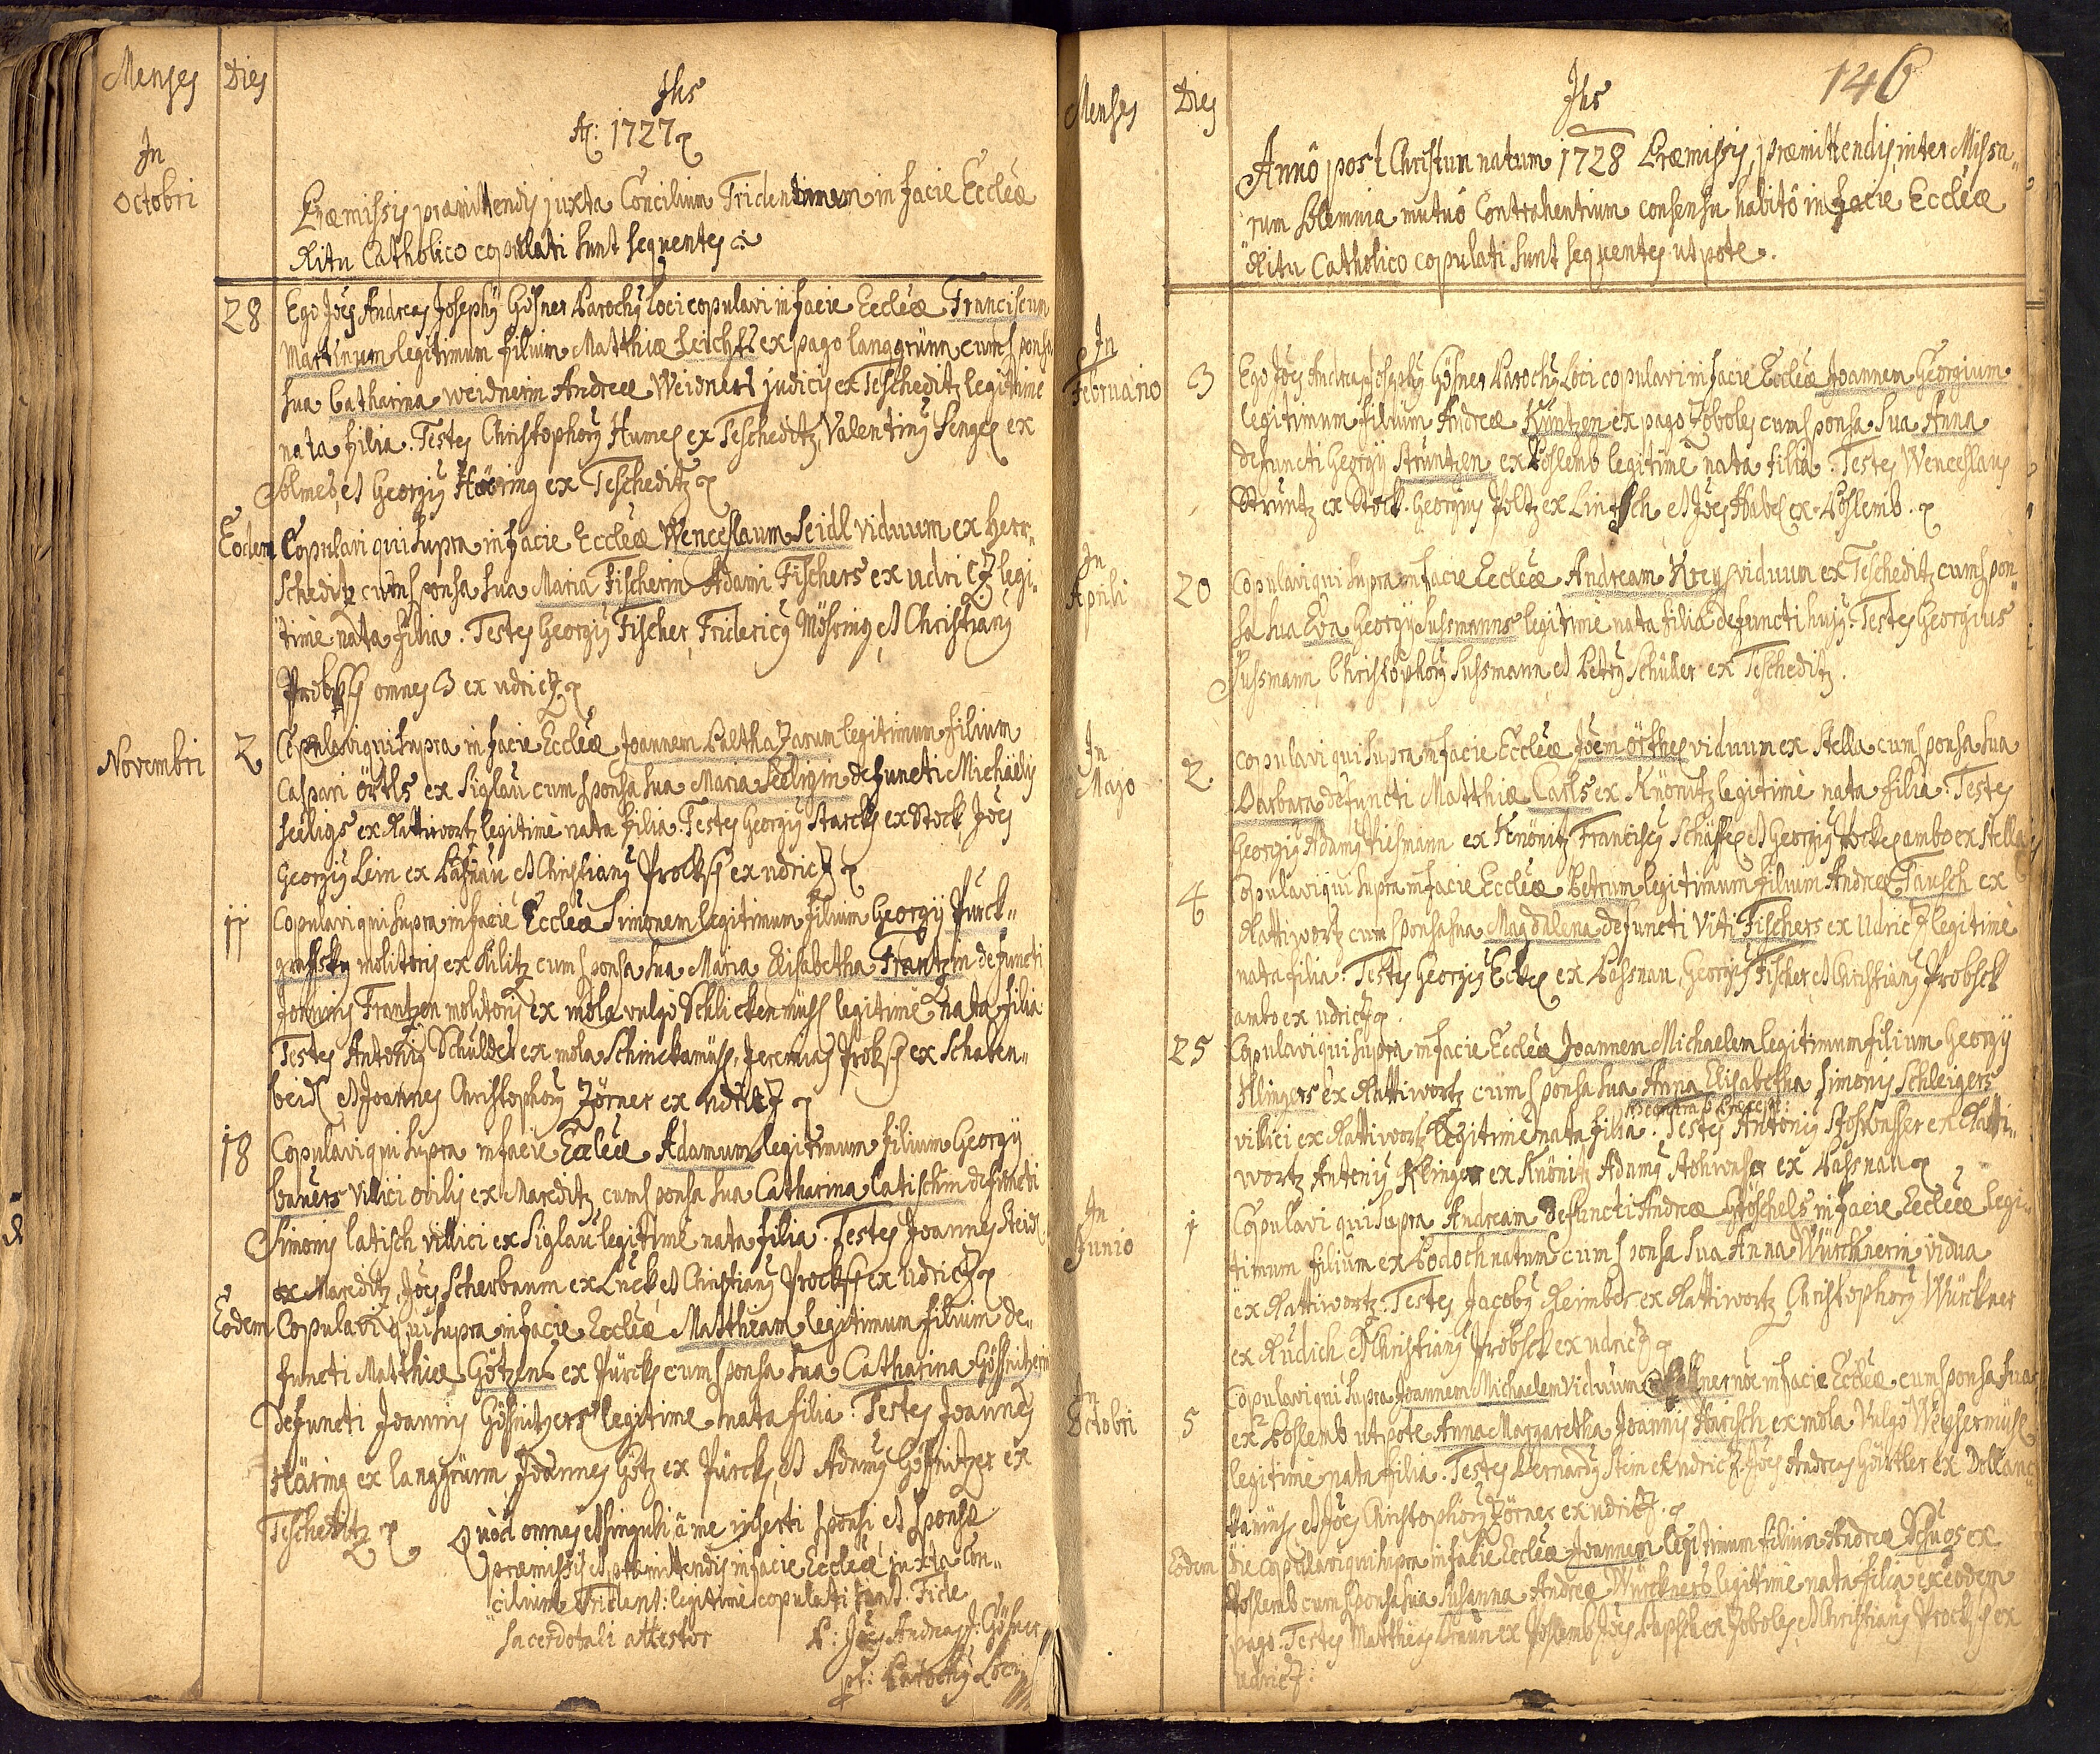 Menses Dies
Jhs
Aõ: 1727
In
Octobri
Præmissis præmittendis juxta Concilium Tridentinum in facie Eccleæ
Ritu Catholico copulati sunt sequentes
28 Ego Joes Andreas Josephg Gößner Parochg Loci copulavi in facie Eccleæ Franciscum
Martinum legitimum filium Matthiæ ex pago langgrünn cum sponsa
sua Catharina weidnerin Andreæ Weidners judicis ex Tescheditz legitime
nata filia. Testes Christophorg Humel ex Tescheditz, Valenting Sengel ex
Solmes, et Georgig Hööring ex Tescheditz
Eodem Copulavi qui supra in facie Eccleæ Wenceslaum Seidl viduum ex Herr-
scheditz cum sponsa sua Maria Fischerin Adami Fischers ex udricz legi-
time nata filia. Testes Georgig Fischer, Fridericg Möhring, et Christiang
omnes 3 ex udricz
Novembri 2 Copulavi qui supra in facie Eccleæ Joannem Balthazarum legitimum filium
Caspari örtls ex Siglau cum sponsa sua Maria Seeligin defuncti Michaëlis
seeligs ex Rattiwortz legitimè nata filia. Testes Georgig Starck ex Stock Joes
Georgig Lein ex Paßnau et Christiang Procksch ex udricz
11 Copulavi qui supra in facie Eccleæ Simonem legitimum filium Georgij Pürck-
molitoris ex Kilitz cum sponsa sua Maria Elisabetha Frantzin defuncti
Joannis Frantzen molitoris ex mola vulgò Schlickenmühl legitimè nata filia
Testes Antonig Schulder ex mola Schinckamühl, Jeremias Proksch ex Schaben-
et Joannes Christophorg Zörner ex udricz
18 Copulavi qui supra in facie Eccleæ Adamum legitimum filium Georgij
bauers villici ovilis ex Mareditz cum sponsa sua Catharina latischin defuncti
Simonis latisch villici ex Siglau legitimè nata filia. Testes Joannes Steidl
ex Mareditz, Joes Scherbaum ex Luck et Christiang Procksch ex udricz
Eodem Copulavi qui supra in facie Eccleæ Matthiam legitimum filium de-
functi Matthiæ Götzens ex Pürcks cum sponsa sua Catharina Gößnitzerin
defuncti Joannis Gößnitzers legitime nata filia. Testes Joannes
Häring ex langgrünn, Joannes Götz ex Pürcks, et Adamg Gößnitzer ex
Tescheditz
Quòd omnes et singuli à me inserti sponsi et sponsæ
præmissis et præmittendis in facie Eccleæ juxta Con-
cilium Trident: legitimè copulati sunt. Fide
sacerdotali attestor P: Joes Andreas J: Gößner
pt: Parochg Loci
Menses Dies
Jhs
146
Annô post Christum natum 1728 Præmissis præmittendis inter Missa-
rum solemnia mutuô Contrahentium consensu habitô in facie Eccleæ
Ritu Catholico copulati sunt sequentes utpote.
In
Februario 3 Ego Joes Andreas Josephg Gößner Parochg Loci copulavi in facie Eccleæ Joannem Georgium
legitimum filium Andreæ Küntzen ex pago Zoboles cum sponsa sua Anna
defuncti Georgij Struntzen ex Poslemb legitimè nata filia. Testes Wenceslaus
Struntz ex Stock. Georgius Poltz ex Lintsch et Joes Habel ex Poslemb.
In
Aprili 20 Copulavi qui supra in facie Eccleæ Andream Krey viduum ex Tescheditz cum spon-
sa sua Eva Georgij Sussmanns legitimè nata filia defuncti hujg. Testes Georgius
Sussmann Christophorg Sussmann et Petrg Schuller ex Tescheditz.
In
Majo 2. copulavi qui supra in facie Eccleæ Joem örthel viduum ex Stella cum sponsa sua
Barbara defuncti Matthiæ Carls ex Knönitz legitimè nata filia. Testes
Georgig Adamg ex Knönitz Franciscg Schäffel et Georgig ambo ex Stella
4 Copulavi qui supra in facie Eccleæ Petrum legitimum filium Andreæ Tausch ex
Rattiwortz cum sponsa sua Magdalena defuncti Viti Fischers ex Udricz legitimè
nata filia. Testes Georgig Eckel ex Passnau, Georgig Fischer et Christiang Probsck
ambo ex udricz.
25 Copulavi qui supra in facie Eccleæ Joannem Michaelem legitimum filium Georgij
Klingers ex Rattiwortz cum sponsa sua Anna Elisabetha Simonis Schleigers
villici ex Rattiwortz legitimè nata filia. Testes Antonig Stohwasser ex Ratti-
wortz Antonig Klinger ex Knönitz Adamg Stohwasser ex Passnau
In
Junio 1 Copulavi qui supra Andream defuncti Andreæ Gröschels in facie Eccleæ legi-
timum filium ex Podoch natum cum sponsa sua Anna Würcknerin vidua
ex Rattiwortz. Testes Jacobg Reimber ex Rattiwortz Christophorg Würckner
ex Rudich et Christiang Probsck ex udricz
In
Octobri 5 Copulavi qui supra Joannem Michaelem Viduum in facie Eccleæ cum sponsa sua
ex Poslemb utpote Anna Margaretha Joannis Harisch ex mola Vulgo Weysermühl
legitimè nata filia. Testes Bernardg Stein ex udricz. Joes Andreas Görtler ex Dollanc-
et Joes Christophorg Zörner ex udricz.
Eodem die copulavi qui supra in facie Eccleæ Joannem legitimum filium Andreæ Schugs ex
Poslemb cum sponsa sua Susanna Andreæ Würckners legitimè nata filia ex eodem
pago. Testes Matthias Braun ex Poslemb Joes Papsch ex Zoboles, et Christiang Procksch ex
udricz.